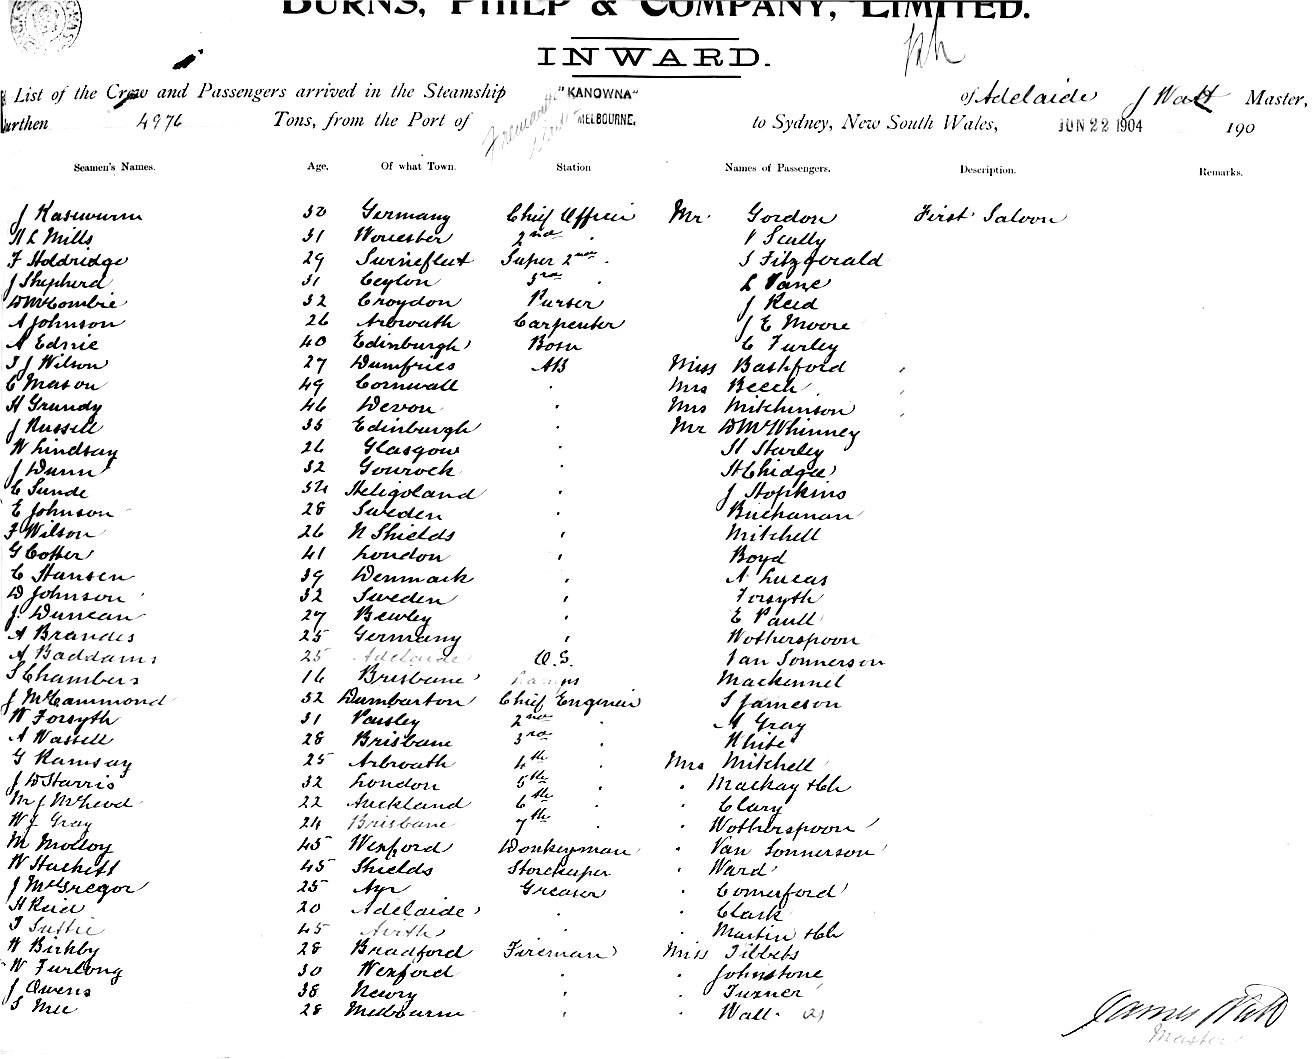 BURNS, PHILP & COMPANY, LIMITED.
INWARD.
List of the Crew and Passengers arrived in the Steamship "KANOWNA" of Adelaide J Watt Master,
urthen 4976 Tons, from the Port of MELBOURNE. to Sydney, New South Wales, JUN 22 1904 190
Seamen's Names. Age. Of what Town. Station Names of Passengers. Description. Remarks.
J Kasewurm 30 Germany Chief Officer Mr. Gordon First Saloon
H L Mills 31 Worcester 2nd V Scully
F Holdridge 29 Surrefleet Super 2nd S Fitzgerald
J Shepherd 31 Ceylon 3rd L Vane
D McCombie 32 Croydon Purser J Reid
A Johnson 26 Arbroath Carpenter J E Moore
A Ednie 40 Edinburgh Bosn C Furley
J J Wilson 27 Dumfries AB Miss Bashford
C Mason 49 Cornwall Mrs Beech
H Grundy 46 Devon Mrs Mitchinson
J Russell 35 Edinburgh Mr D McWhinney
W Lindsay 26 Glasgow H Harley
J Dunn 32 Gourock H Chidgee
C Sunde 54 Heligoland J Hopkins
E Johnson 28 Sweden Buchanan
F Wilson 26 N Shields Mitchell
G Cotter 41 London Boyd
C Hansen 39 Denmark A Lucas
D Johnson 32 Sweden Forsyth
J. Duncan 27 Bewley E Paull
A Brandes 25 Germany Wotherspoon
A Baddams 25 Adelaide O.S. Van Sonnerson
S Chambers 16 Brisbane Lamps Mackennel
J McCammond 32 Dumbarton Chief Engineer S Jameson
W Forsyth 31 Paisley 2nd A Gray
A Wassell 28 Brisbane 3rd White
G Ramsay 25 Arbroath 4th Mrs Mitchell
J D Harris 32 London 5th Mackay & Ch
M J McLeod 22 Auckland 6th Clary
W J Gray 24 Brisbane 7th Wotherspoon
M Molloy 45 Wexford Donkeyman Van Sonnerson
W Hackett 45 Shields Storekeeper Ward
J McGregor 25 Ayr Greaser Comerford
H Reid 20 Adelaide Clark
45 Airth Martin & Ch
W Birkby 28 Bradford Fireman Miss Tibbets
W Furlong 30 Wexford Johnstone
J Owens 38 Newry Turner
S Mee 28 Melbourne Wall (2)
James Watt
Master